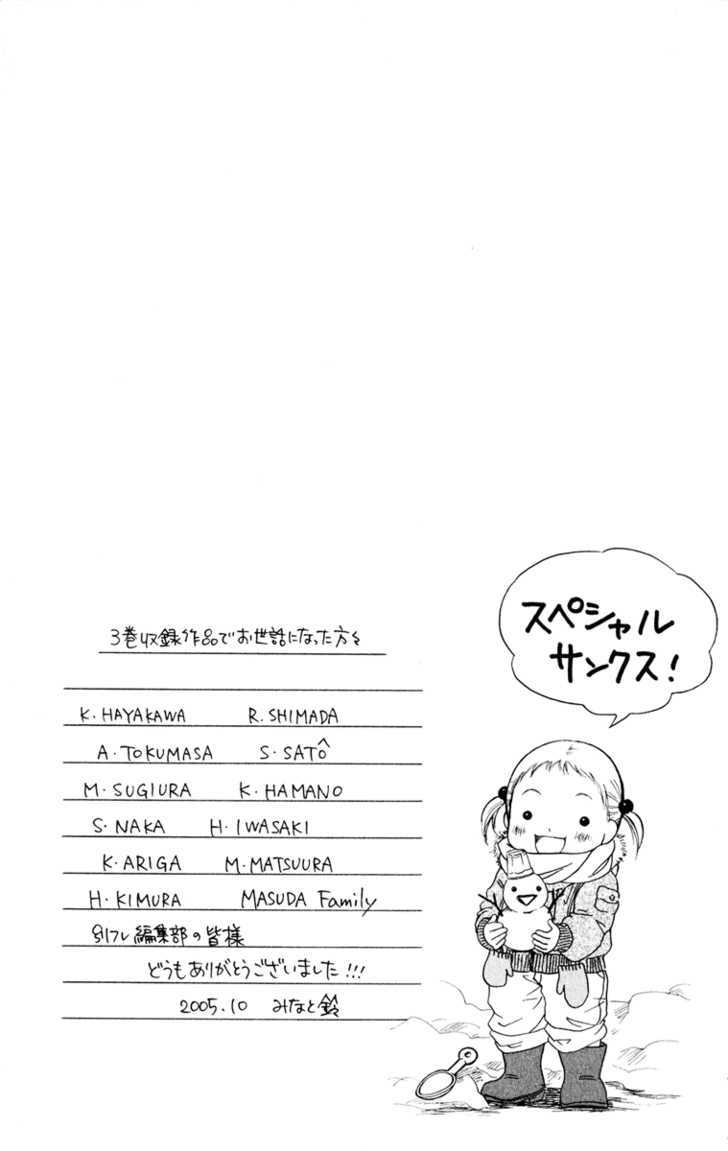 スペシャル
サンクス!
3巻収録作品でお世話になった方々
K. HAYAKAWA R. SHIMADA
A. TOKUMASA S. SATÔ
M. SUGIURA K. HAMANO
S. NAKA H. IWASAKI
K. ARIGA M. MATSUURA
H. KIMURA MASUDA Family
別フレ編集部の皆様
どうもありがとうございました!!!
2005.10 みなと鈴